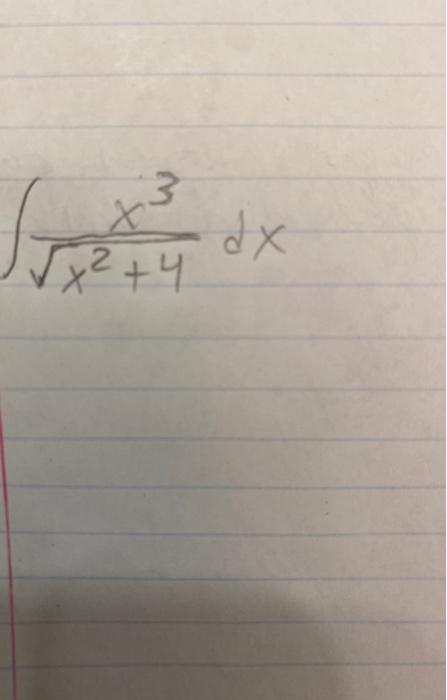 ∫ x³/√(x²+4) dx